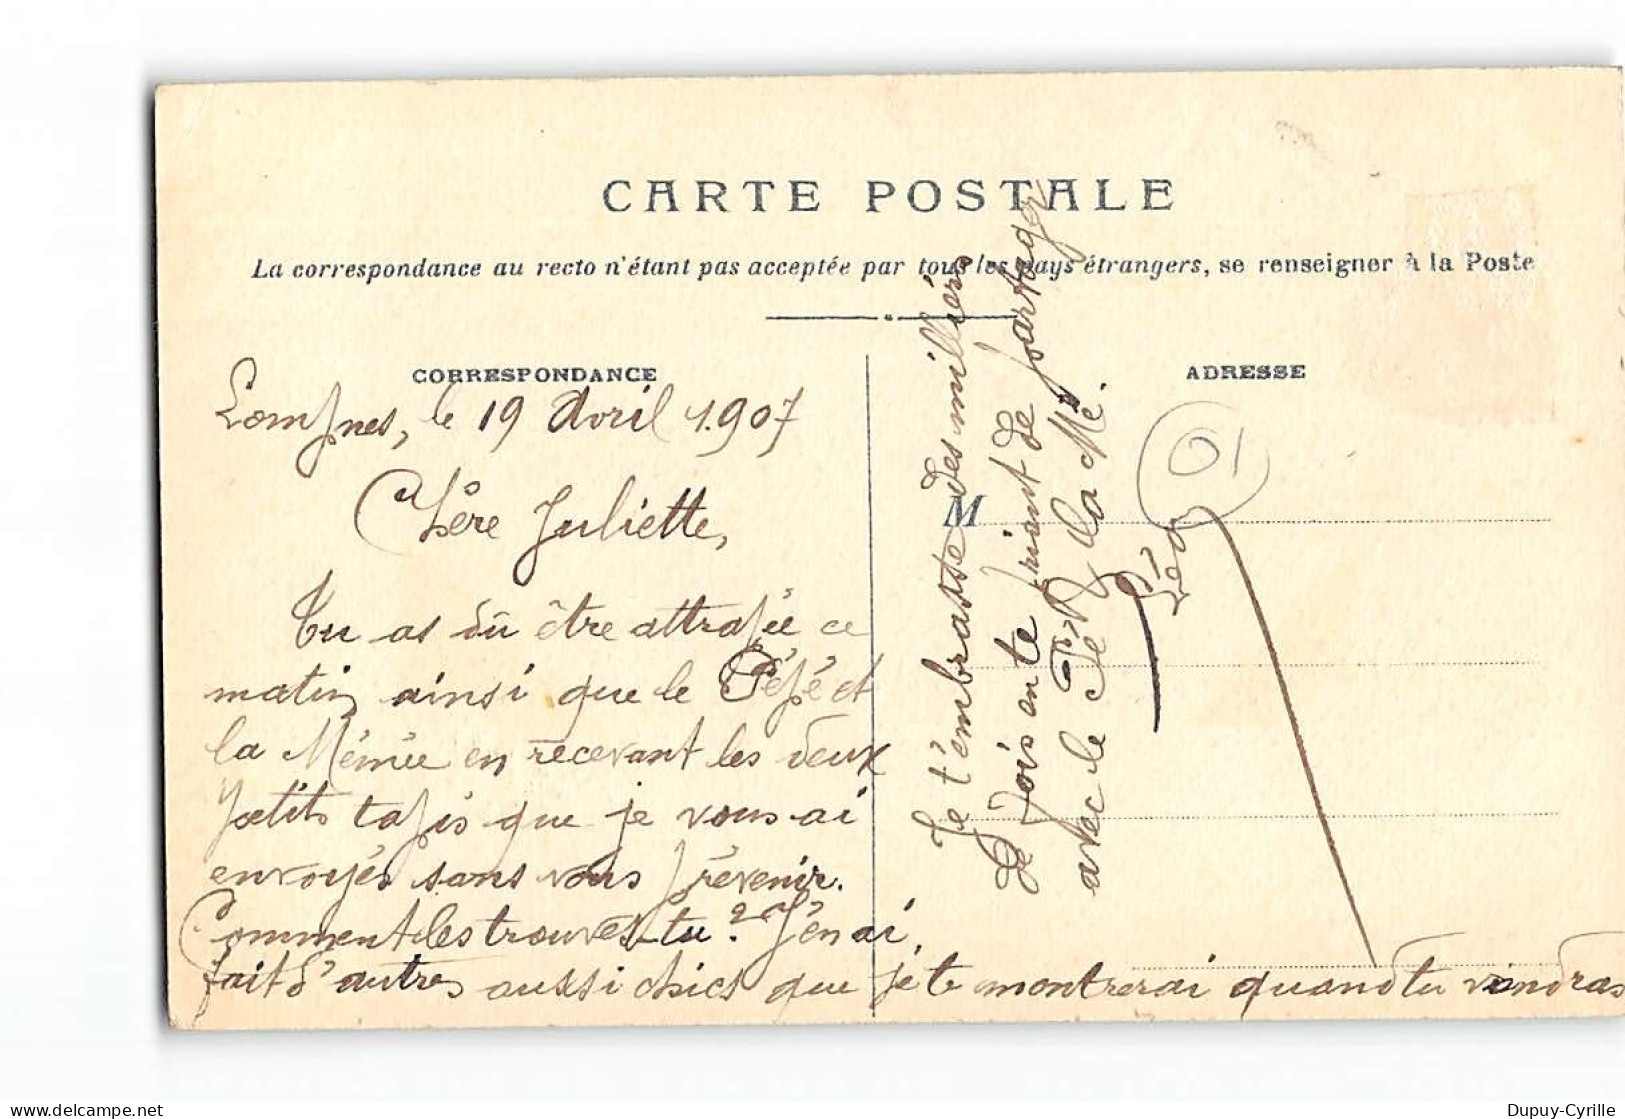 CARTE POSTALE
La correspondance au recto n'étant pas acceptée par tous les pays étrangers, se renseigner à la Poste
CORRESPONDANCE
ADRESSE
M
Lompnes, le 19 Avril 1.907
Chère Juliette,
Tu as dû être attrapée ce
matin ainsi que le Pépé et
la Mémée en recevant les deux
petits tapis que je vous ai
envoyés sans vous prévenir.
Comment les trouves-tu? J'en ai
fait d'autres aussi chics que je te montrerai quand tu viendras
Je t'embrasse des milliers
de fois en te priant de partager
avec le Pé et la Mé.
Léa
01
Dupuy-Cyrille